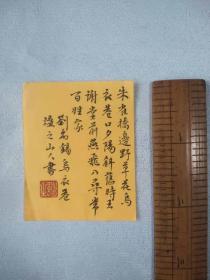 朱雀橋邊野草花烏
衣巷口夕陽斜舊時王
謝堂前燕飛入尋常
百姓家
劉禹錫烏衣巷
之山人書